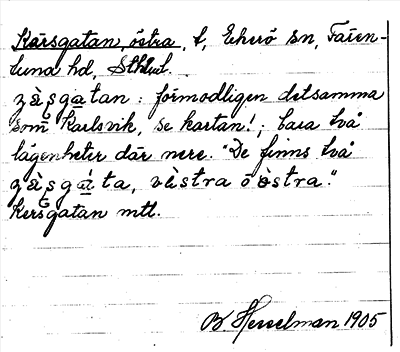 Kärsgatan, östra, t, Ekerö sn, Fären-
tuna hd, Sthlm.
förmodligen detsamma
som Karlsvik, se kartan!, bara två
lägenheter där nere. "De finns två
västra o östra."
Kersgatan mtl.
B Hesselman 1905